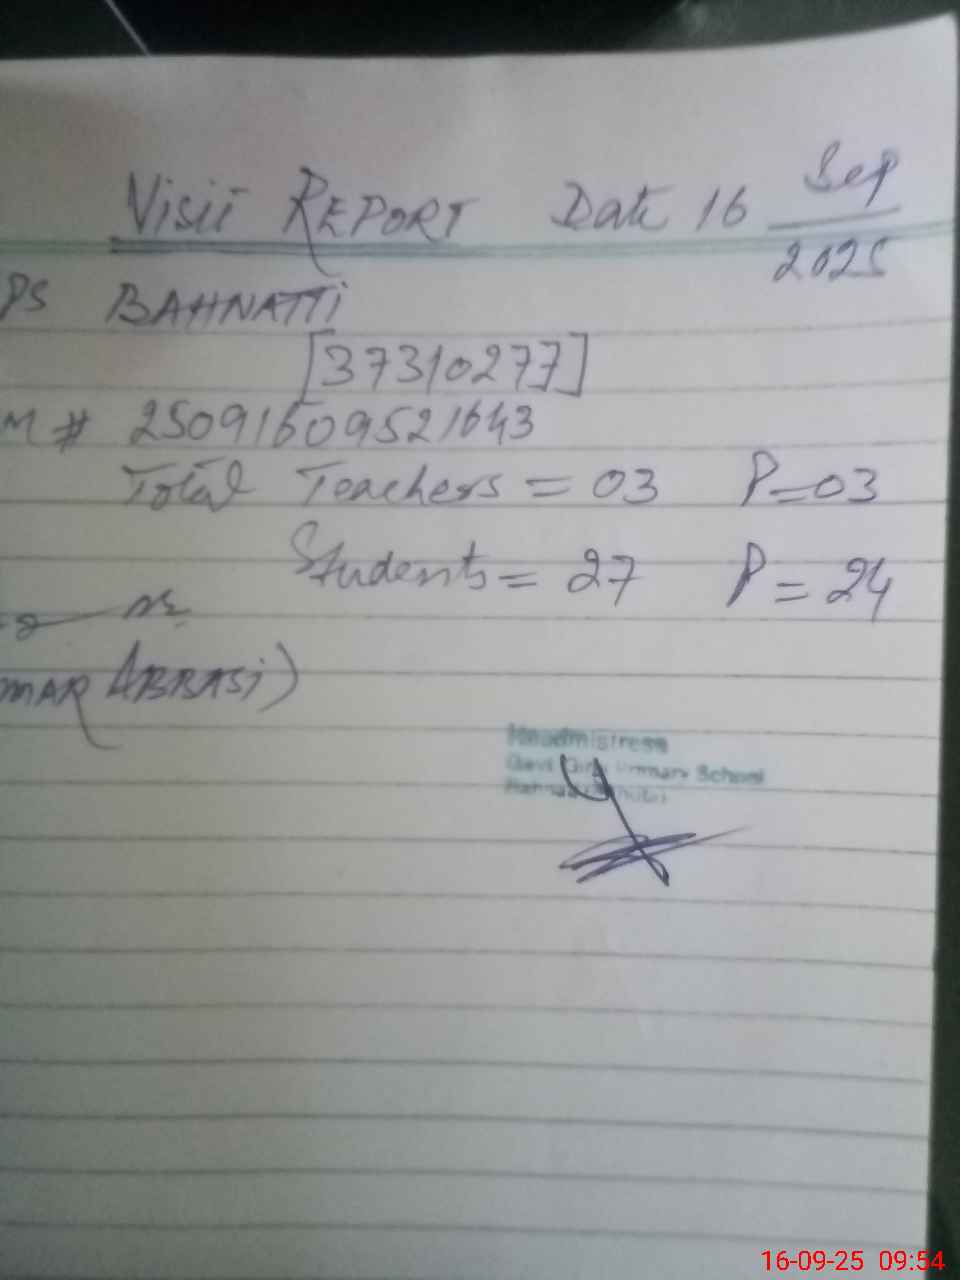 Visit REPORT Date 16 Sep
2025
PS BAHNATTI
[37310277]
M# 250916609521643
Total Teachers = 03 P=03
Students = 27 P = 24
MAR ABBASi)
Headmistress
Govt Girls Primary School
16-09-25 09:54